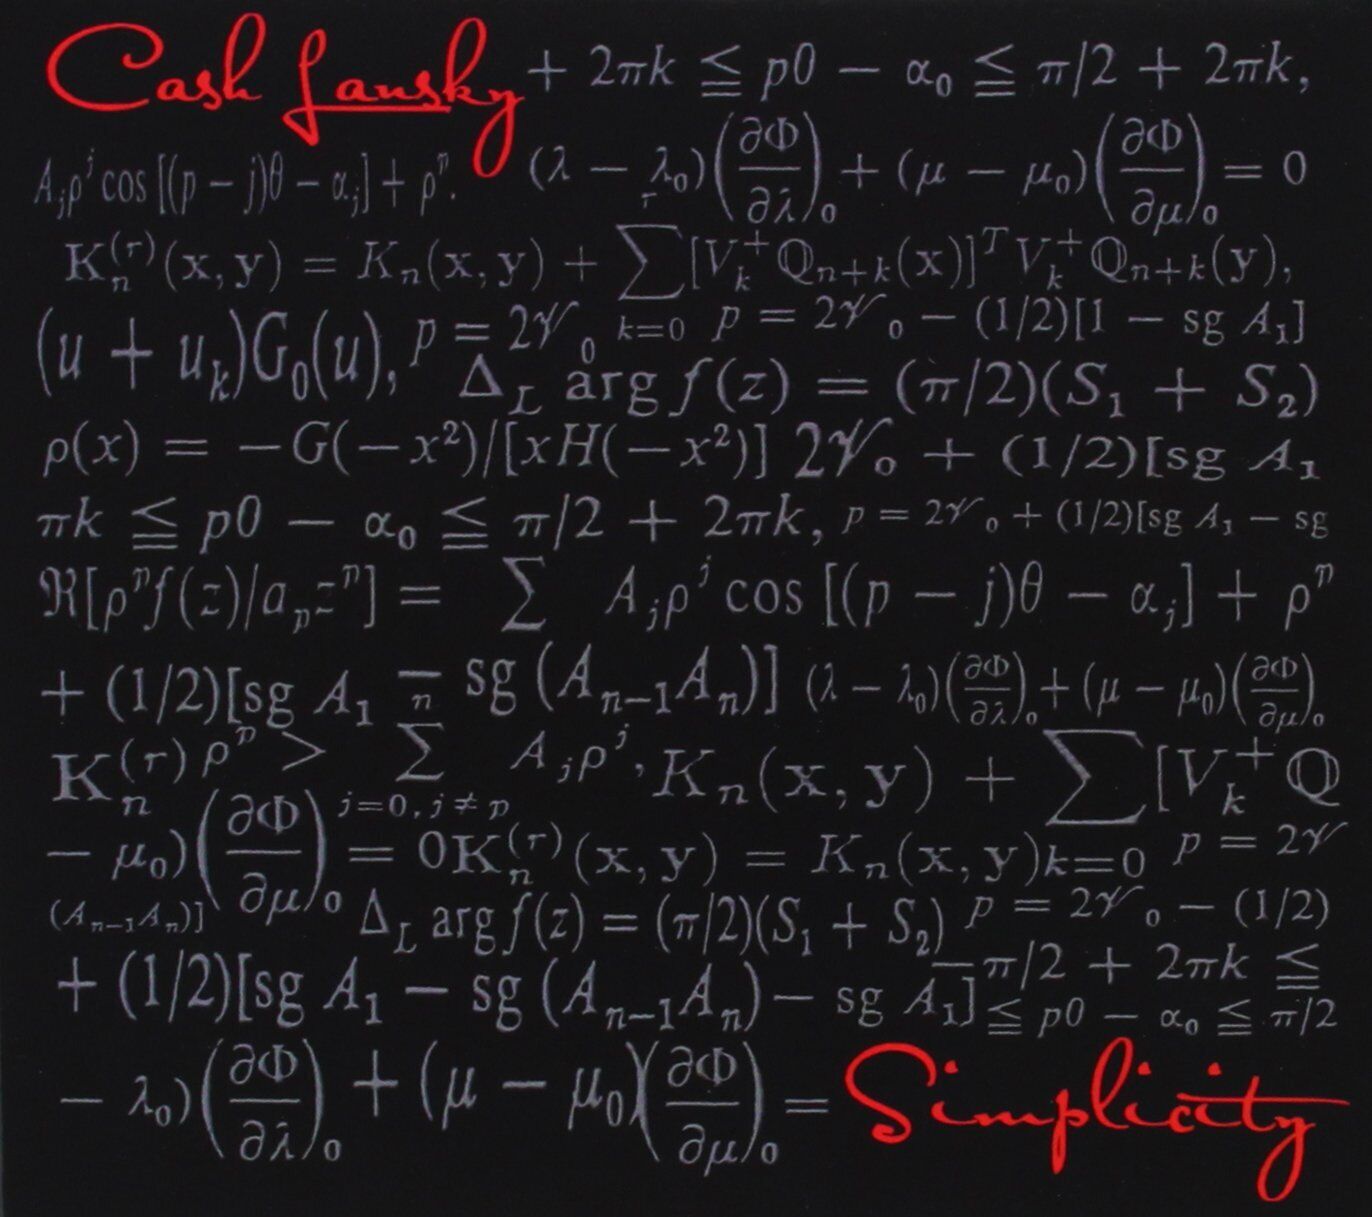 Cash Lansky + 2πk ≦ p0 − α₀ ≦ π/2 + 2πk,
Aⱼρʲ cos [(p − j)θ − αⱼ] + ρⁿ. (λ − λ₀)(∂Φ/∂λ)₀ + (μ − μ₀)(∂Φ/∂μ)₀ = 0
Kₙ⁽ʳ⁾(x, y) = Kₙ(x, y) + r∑k=0 [Vₖ⁺Qₙ₊ₖ(x)]ᵀVₖ⁺Qₙ₊ₖ(y),
(u + uₖ)G₀(u), p = 2𝒱₀ p = 2𝒱₀ − (1/2)[1 − sg A₁]
Δ_L arg f(z) = (π/2)(S₁ + S₂)
ρ(x) = −G(−x²)/[xH(−x²)] 2𝒱₀ + (1/2)[sg A₁
πk ≦ p0 − α₀ ≦ π/2 + 2πk, p = 2𝒱₀ + (1/2)[sg A₁ − sg
ℜ[ρᵖf(z)/aₚzᵖ] = ∑ Aⱼρʲ cos [(p − j)θ − αⱼ] + ρᵖ
n
+ (1/2)[sg A₁ − sg (Aₙ₋₁Aₙ)] (λ − λ₀)(∂Φ/∂λ)₀ + (μ − μ₀)(∂Φ/∂μ)₀
Kₙ⁽ʳ⁾ ρᵖ > ∑j=0, j≠p Aⱼρʲ, Kₙ(x, y) + ∑ [Vₖ⁺Q
− μ₀)(∂Φ/∂μ)₀ = 0Kₙ⁽ʳ⁾(x, y) = Kₙ(x, y)k=0 p = 2𝒱
(Aₙ₋₁Aₙ)] Δ_L arg f(z) = (π/2)(S₁ + S₂) p = 2𝒱₀ − (1/2)
−π/2 + 2πk ≦
+ (1/2)[sg A₁ − sg (Aₙ₋₁Aₙ) − sg A₁] ≦ p0 − α₀ ≦ π/2
− λ₀)(∂Φ/∂λ)₀ + (μ − μ₀)(∂Φ/∂μ)₀ = Simplicity